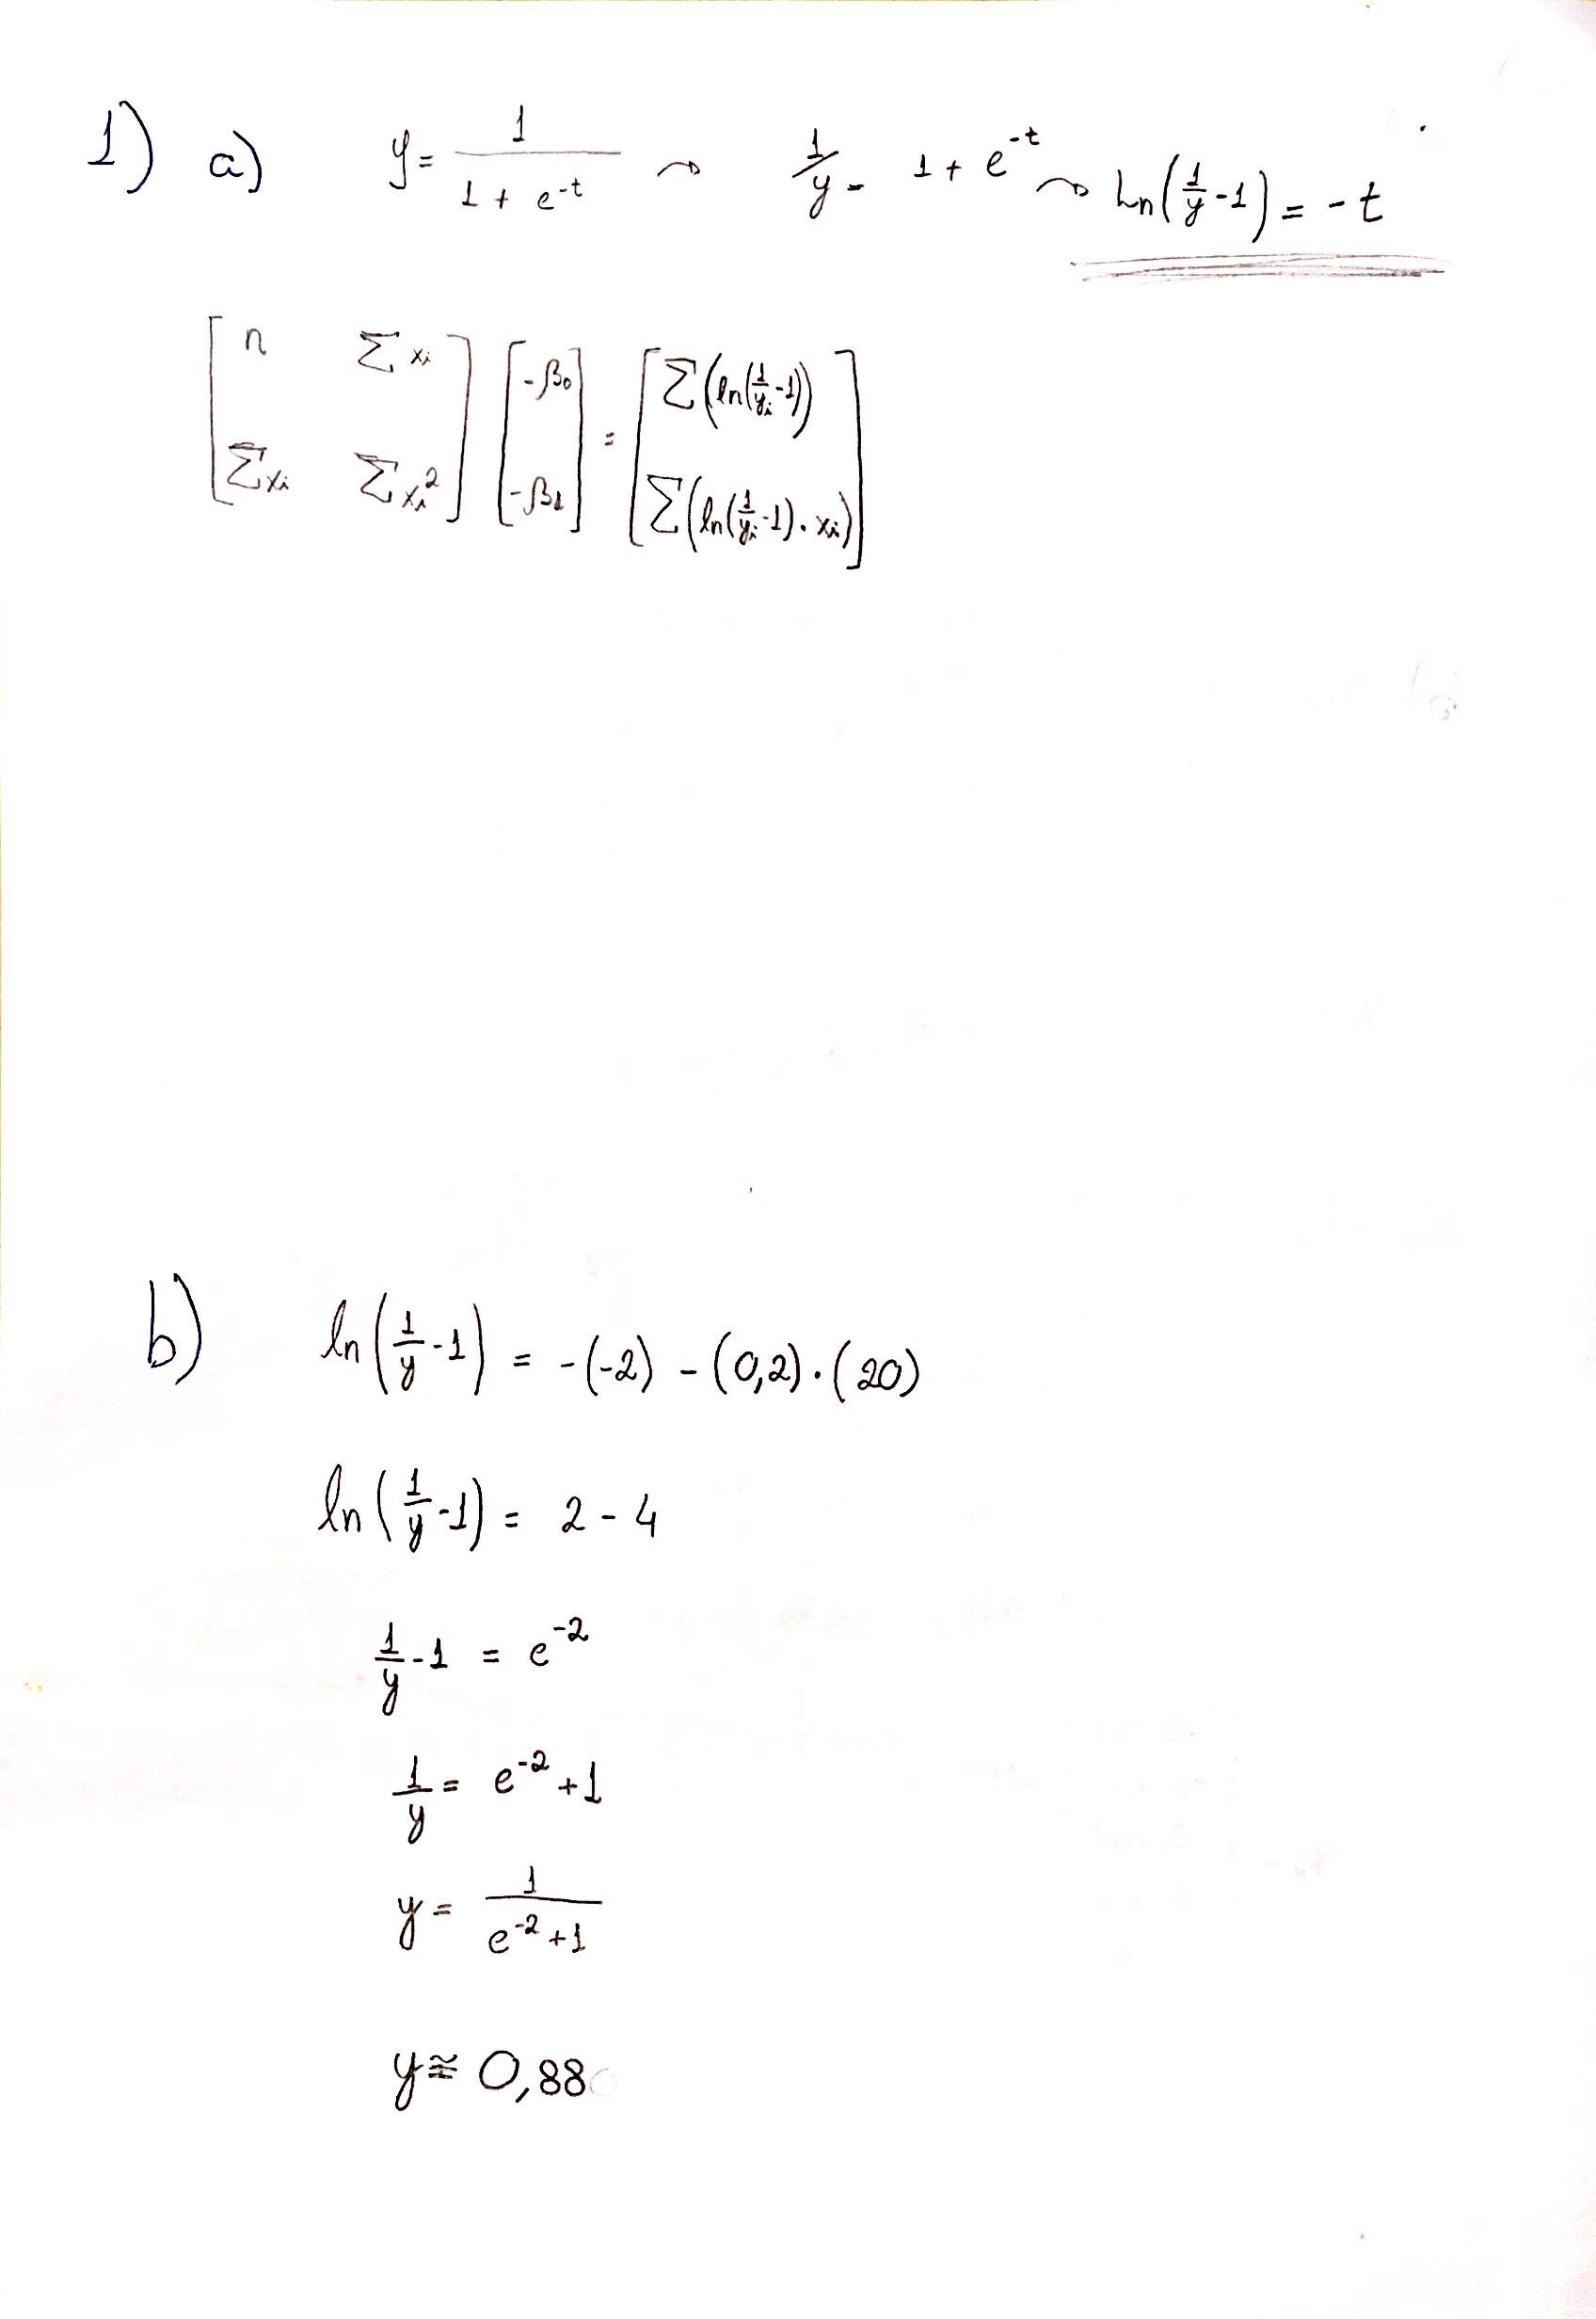 1) a) y = 1/(1 + e^-t) ⤳ 1/y - 1 + e^-t ⤳ Ln(1/y -1) = -t
[n Σxi; Σxi Σxi²] [-β0; -β1] = [Σ(ln(1/yi -1)); Σ(ln(1/yi -1)·xi)]
b) ln(1/y -1) = -(-2) - (0,2)·(20)
ln(1/y -1) = 2 - 4
1/y -1 = e^-2
1/y = e^-2 +1
y = 1/(e^-2 +1)
y ≅ 0,88